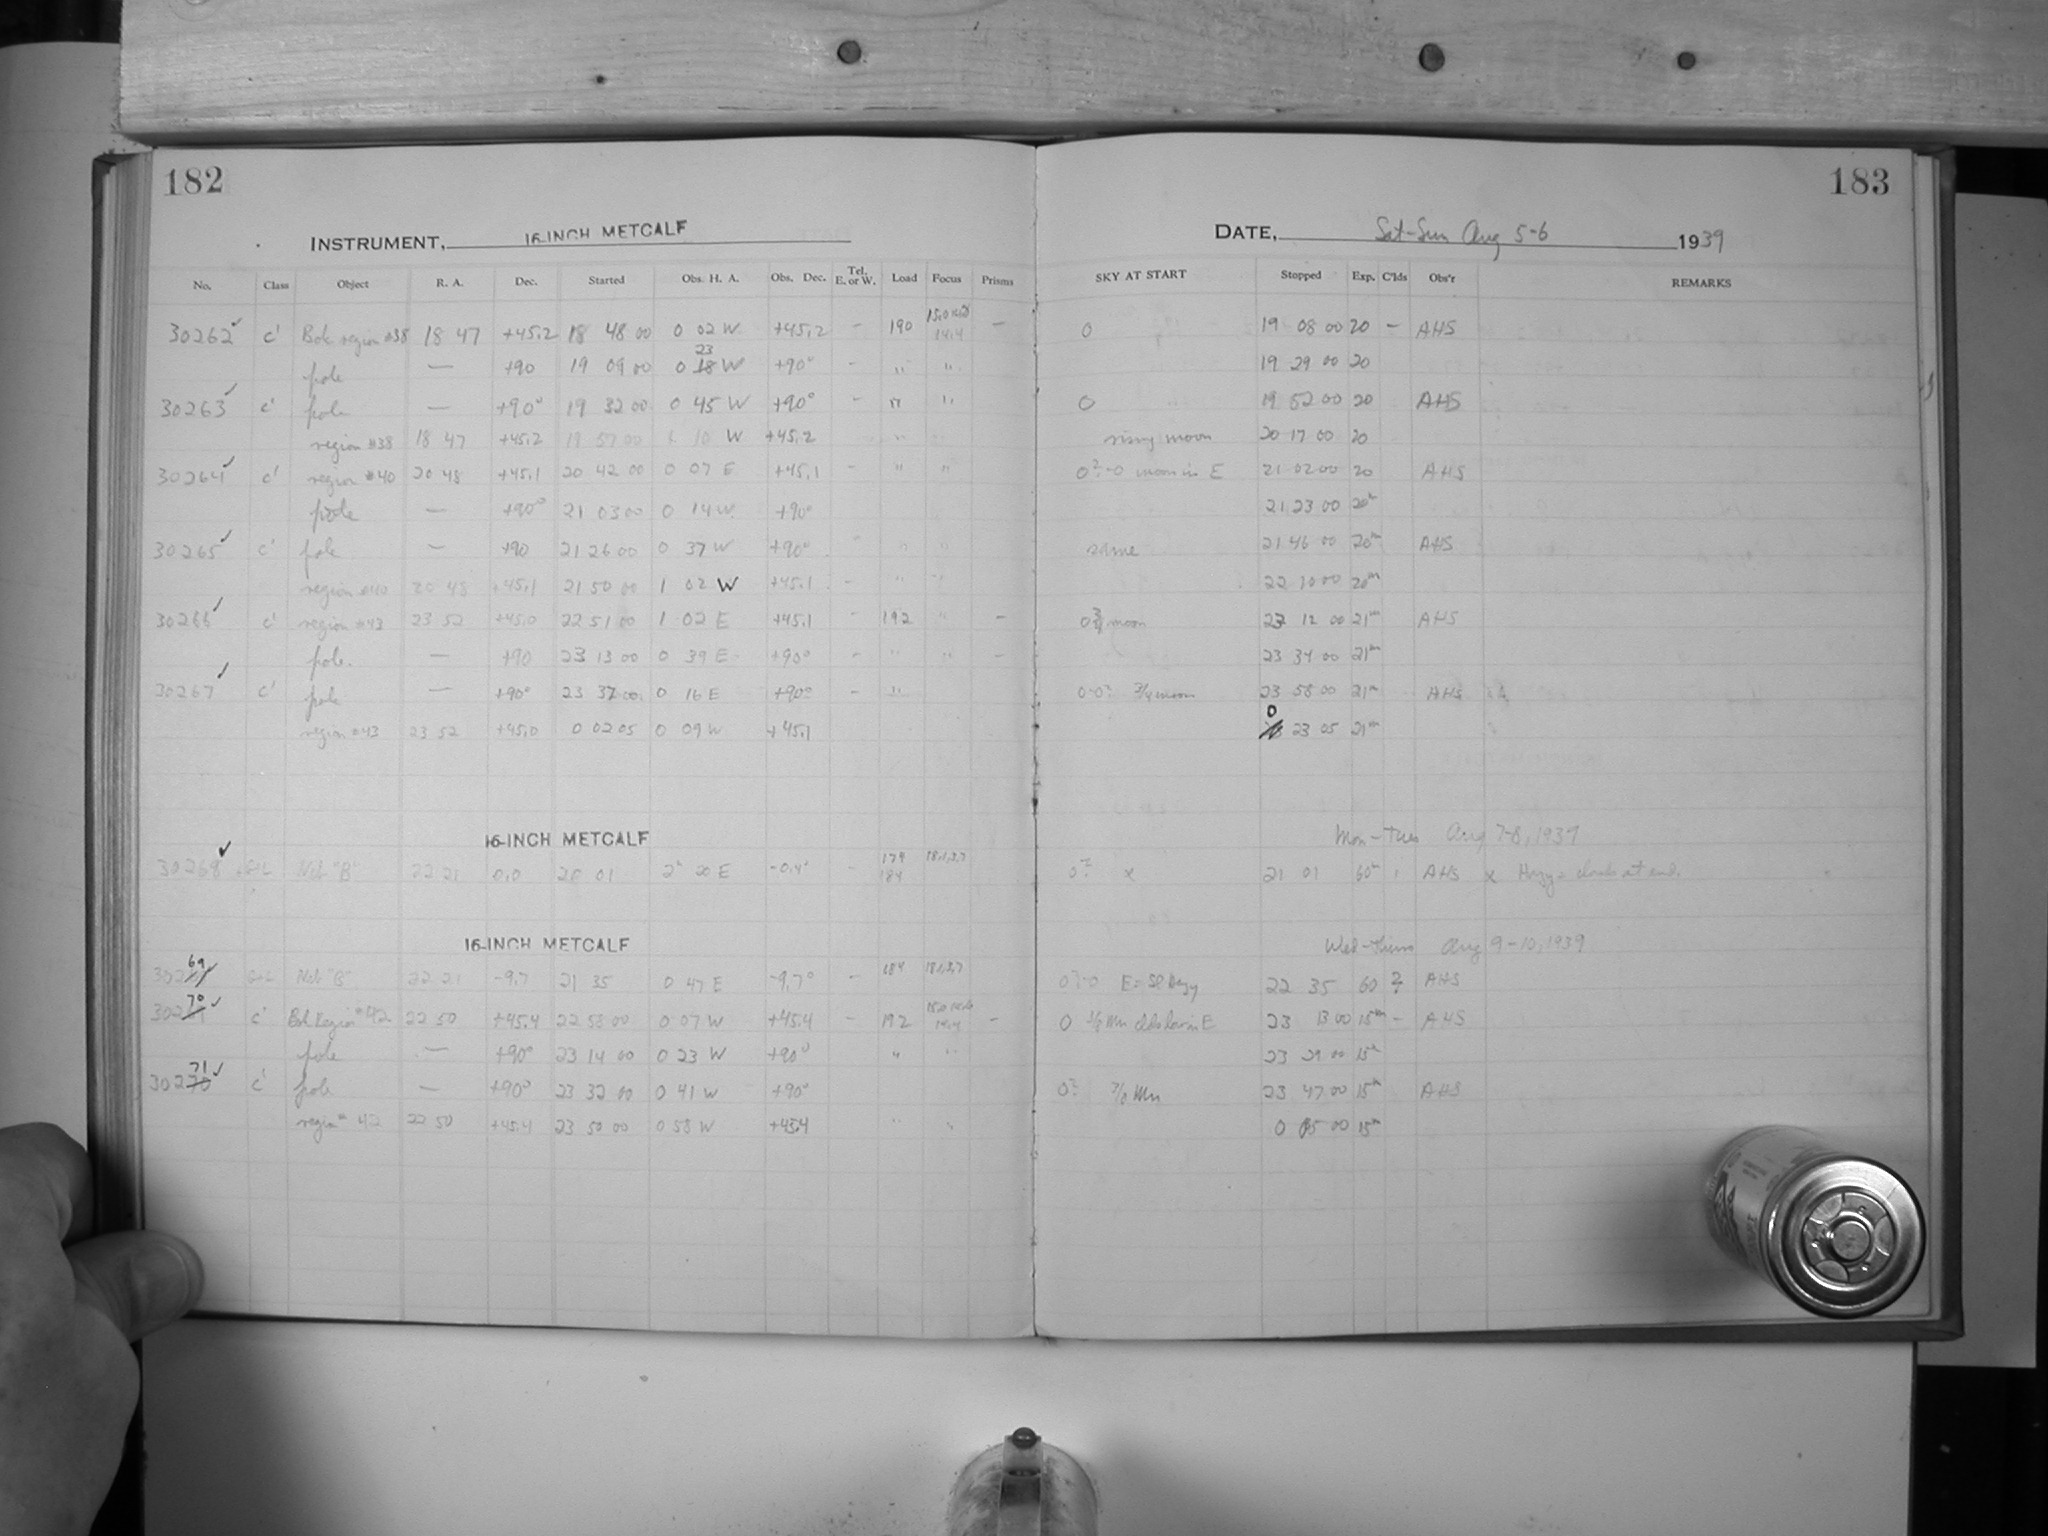 182
183
INSTRUMENT, 16-INCH METCALF
DATE, Sat-Sun Aug 5-6 1939
No. Class Object R. A. Dec. Started Obs. H. A. Obs. Dec. Tel. E. or W. Load Focus Prisms SKY AT START Stopped Exp. C'lds Obs'r REMARKS
30262 ✓ c' Bok region #38 18 47 +45.2 18 48 00 0 02 W +45.2 - 190 14.4 - 0 19 08 00 20 - AHS
pole — +90 19 09 00 0 18 23 W +90° - " " 19 29 00 20
30263 ✓ c' pole — +90° 19 32 00 0 45 W +90° - " " 0 19 52 00 20 AHS
region #38 18 47 +45.2 19 57 00 1 10 W +45.2 " rising moon 20 17 00 20
30264 ✓ c' region #40 20 48 +45.1 20 42 00 0 07 E +45.1 - " " 0?-0 moon in E 21 02 00 20 AHS
pole — +90° 21 03 00 0 14 W +90° 21 23 00 20m
30265 ✓ c' pole — +90 21 26 00 0 37 W +90° " " same 21 46 00 20m AHS
region #40 20 48 +45.1 21 50 00 1 02 W +45.1 - " " 22 10 00 20m
30266 ✓ c' region #43 23 52 +45.0 22 51 00 1 02 E +45.1 - 192 " - moon 23 12 00 21m AHS
pole. — +90 23 13 00 0 39 E +90° - " " - 23 34 00 21m
30267 ✓ c' pole — +90° 23 37 00 0 16 E +90° - " 0-0? 3/4 moon 23 58 00 21m AHS
region #43 23 52 +45.0 0 02 05 0 09 W +45.1 0 23 05 21m
16-INCH METCALF Mon-Tues Aug 7-8, 1939
30268 ✓ Neb "B" 22 21 0.0 20 01 2h 20 E -0.4° - 179 184 18.1,3.7 0? x 21 01 60m AHS x Hazy - clouds at end.
16-INCH METCALF Wed-Thurs Aug 9-10, 1939
302 69 Neb "B" 22 21 -9.7 21 35 0 47 E -9.7° - 184 18.1,3.7 0?-0 E = Sl Hazy 22 35 60 2 AHS
302 70 ✓ c' Bok Region #42 22 50 +45.4 22 58 00 0 07 W +45.4 - 192 14.4 - 0 clds low in E 23 13 00 15m - AHS
pole — +90° 23 14 00 0 23 W +90° " " 23 29 00 15m
30270 71 ✓ c' pole — +90° 23 32 00 0 41 W +90° 0? Mn 23 47 00 15m AHS
region #42 22 50 +45.4 23 50 00 0 58 W +45.4 " " 0 05 00 15m